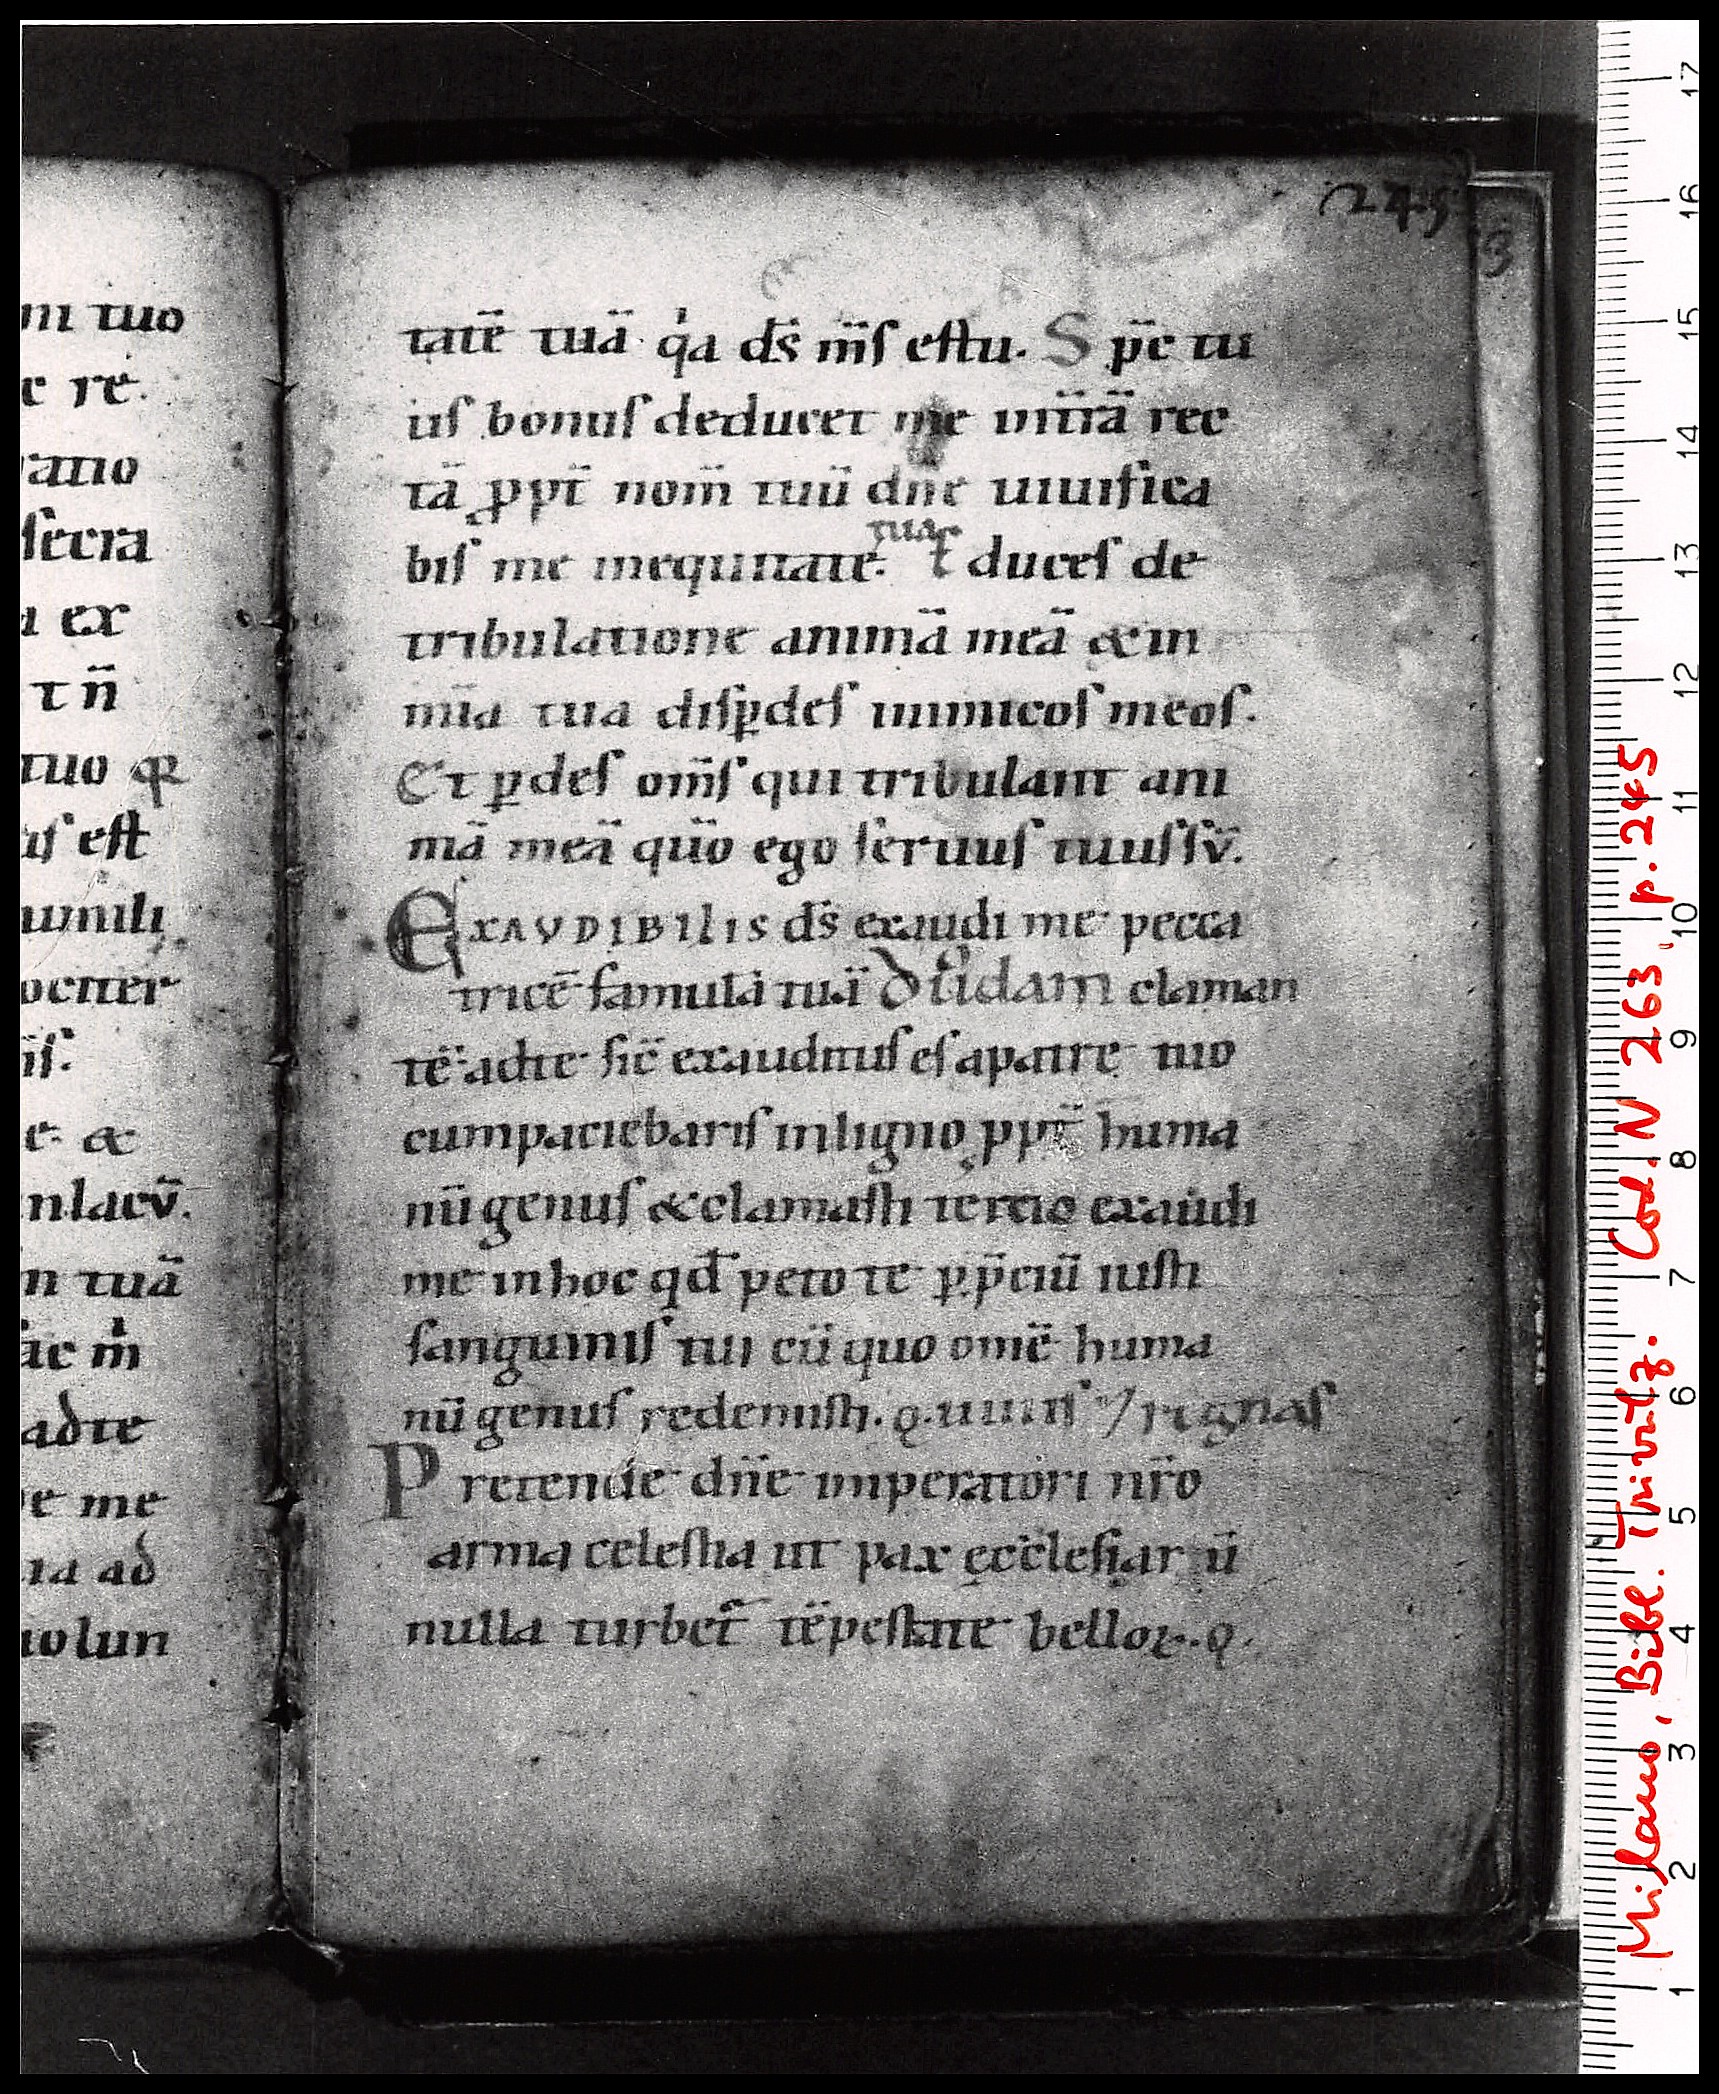 m tuo
c re.
ratio
secra
a ex
t ñ
tuo qr
us est
umili
ociter
īs.
e. &
nlacū.
n tuā
ac m̍
adte
e me
ia ad
uolun
245
tatē tuā. q̍a ds̄ m̄s estu. S pc̄ tu
us bonus deducet me intr̄ā rec
tā ꝓpt̄ nom̄ tuū dn̄e uiuifica
bis me inequitate. tua Educes de
tribulatione animā meā & in
mīa tua disꝑdes inimicos meos.
Et ꝑdes om̄s qui tribulant ani
mā meā qūo ego seruus tuus sū.
EXAVDIBILIS ds̄ exaudi me pecca
tricē famulā tuā claman
tē adte sic̄ exauditus es apatre tuo
cumpaciebaris inligno ꝓpt̄ huma
nū genus & clamasti tercio exaudi
me inhoc qd̄ peto te ꝑ p̄ciū iusti
sanguinis tui cū quo omē huma
nū genus redemisti. q. uiuis ⁊ regnas
Pretende dn̄e imperatori nr̄o
arma celestia ut pax ęcclesiar ū
nulla turbet̄ tēpestate belloꝝ. q.
Milano, Bibl. Trivulz. Cod. N 263, p. 245
1 2 3 4 5 6 7 8 9 10 11 12 13 14 15 16 17